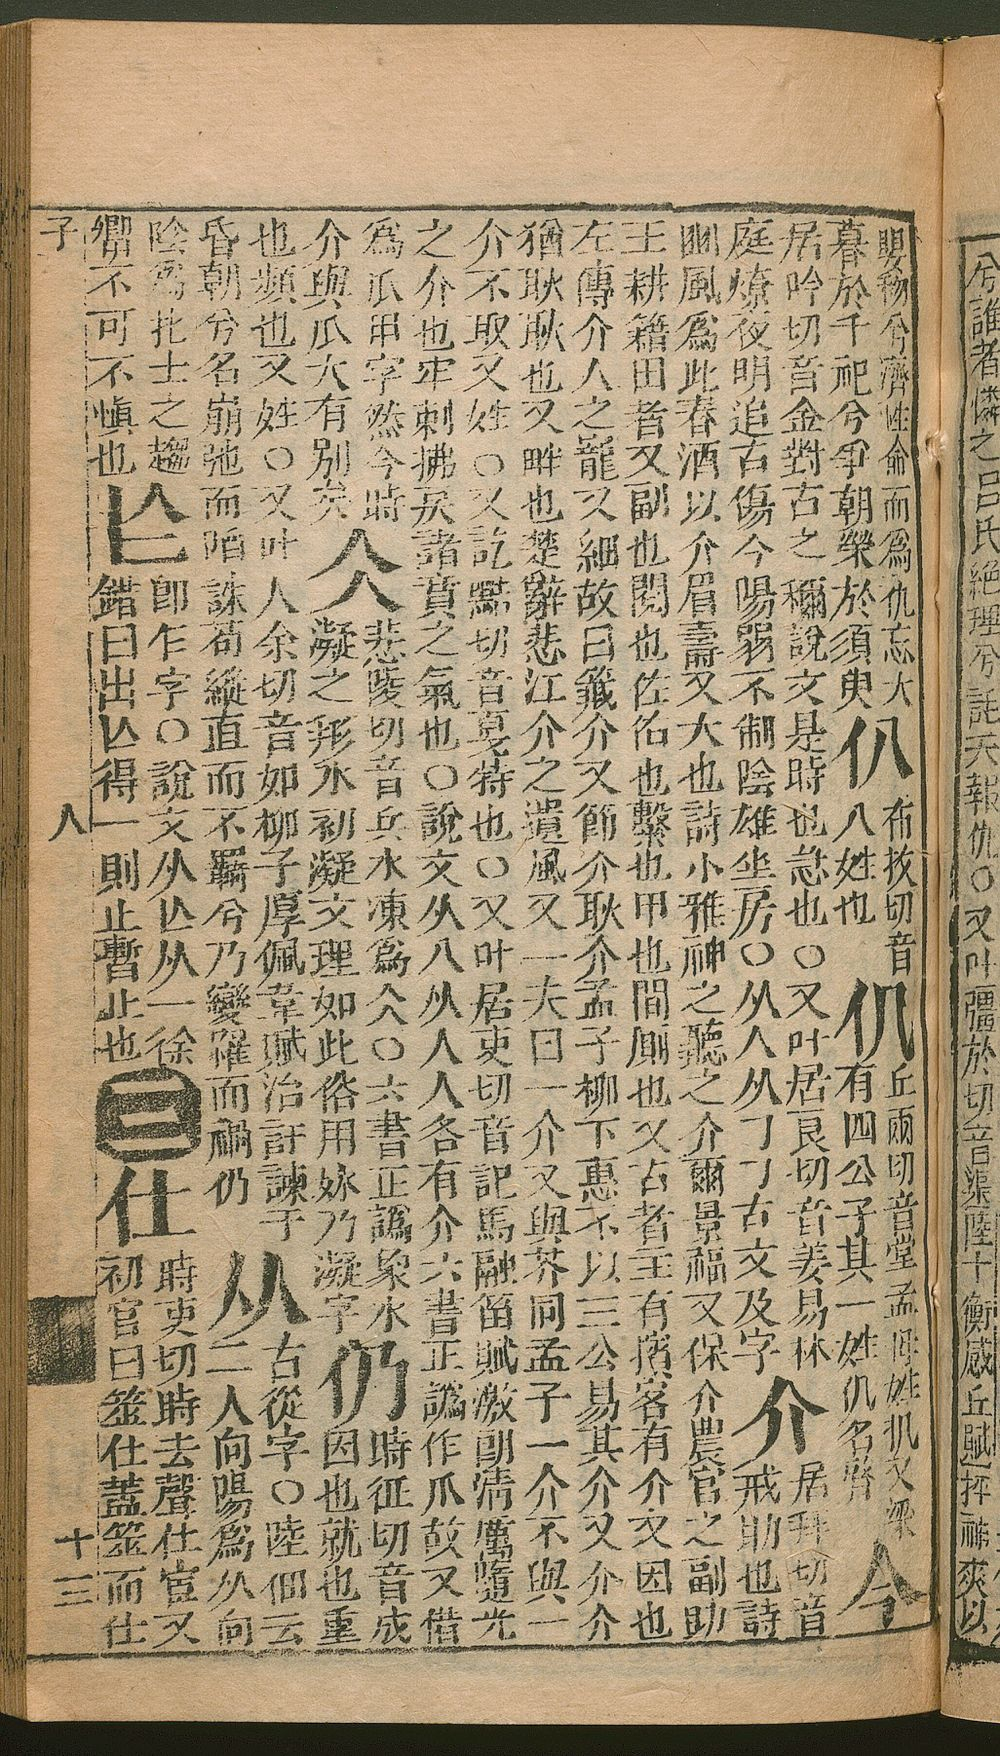 兮誰者憐之呂氏絕理兮託天報仇○又叶彊於切音渠陸士衡感丘賦抨神爽以
嬰物兮濟性命而爲仇忘大
暮於千祀兮爭朝榮於須臾
仈
布拔切音
八姓也
仉
丘兩切音堂孟母姓仉又梁
有四公子其一姓仉名䏿
今
居吟切音金對古之稱說文是時也急也○又叶居良切音姜易林
庭燎夜明追古傷今陽弱不制陰雄坐房○从人从㇆㇆古文及字
介
居拜切音
戒助也詩
豳風爲此春酒以介眉壽又大也詩小雅神之聽之介爾景福又保介農官之副助
王耕籍田者又副也閱也佐名也繫也甲也間廁也又古者主有擯客有介又因也
左傳介人之寵又細故曰籤介又節介耿介孟子柳下惠不以三公易其介又介介
猶耿耿也又畔也楚辭悲江介之遺風又一夫曰一介又與芥同孟子一介不與一
介不取又姓○又訖黠切音戛特也○又叶居吏切音記馬融笛賦激朗清厲隨光
之介也牢刺拂戾諸賁之氣也○說文从八从人人各有介六書正譌作爪故又借
爲爪甲字然今時
介與爪大有別矣
仌
悲陵切音兵水凍爲仌○六書正譌象水
凝之形水初凝文理如此俗用冰乃凝字
仍
時征切音成
因也就也重
也頻也又姓○又叶人余切音如柳子厚佩韋賦治訐諫于
昏朝兮名崩弛而陷誅苟縱直而不羈兮乃變罹而禍仍
从
古從字○陸佃云
二人向陽爲从向
陰爲北士之趨
嚮不可不愼也
亾
卽乍字○說文从亾从一徐
錯曰出亾得一則止暫止也
三
仕
時吏切時去聲仕宦又
初官曰筮仕蓋筮而仕
子
人
十三